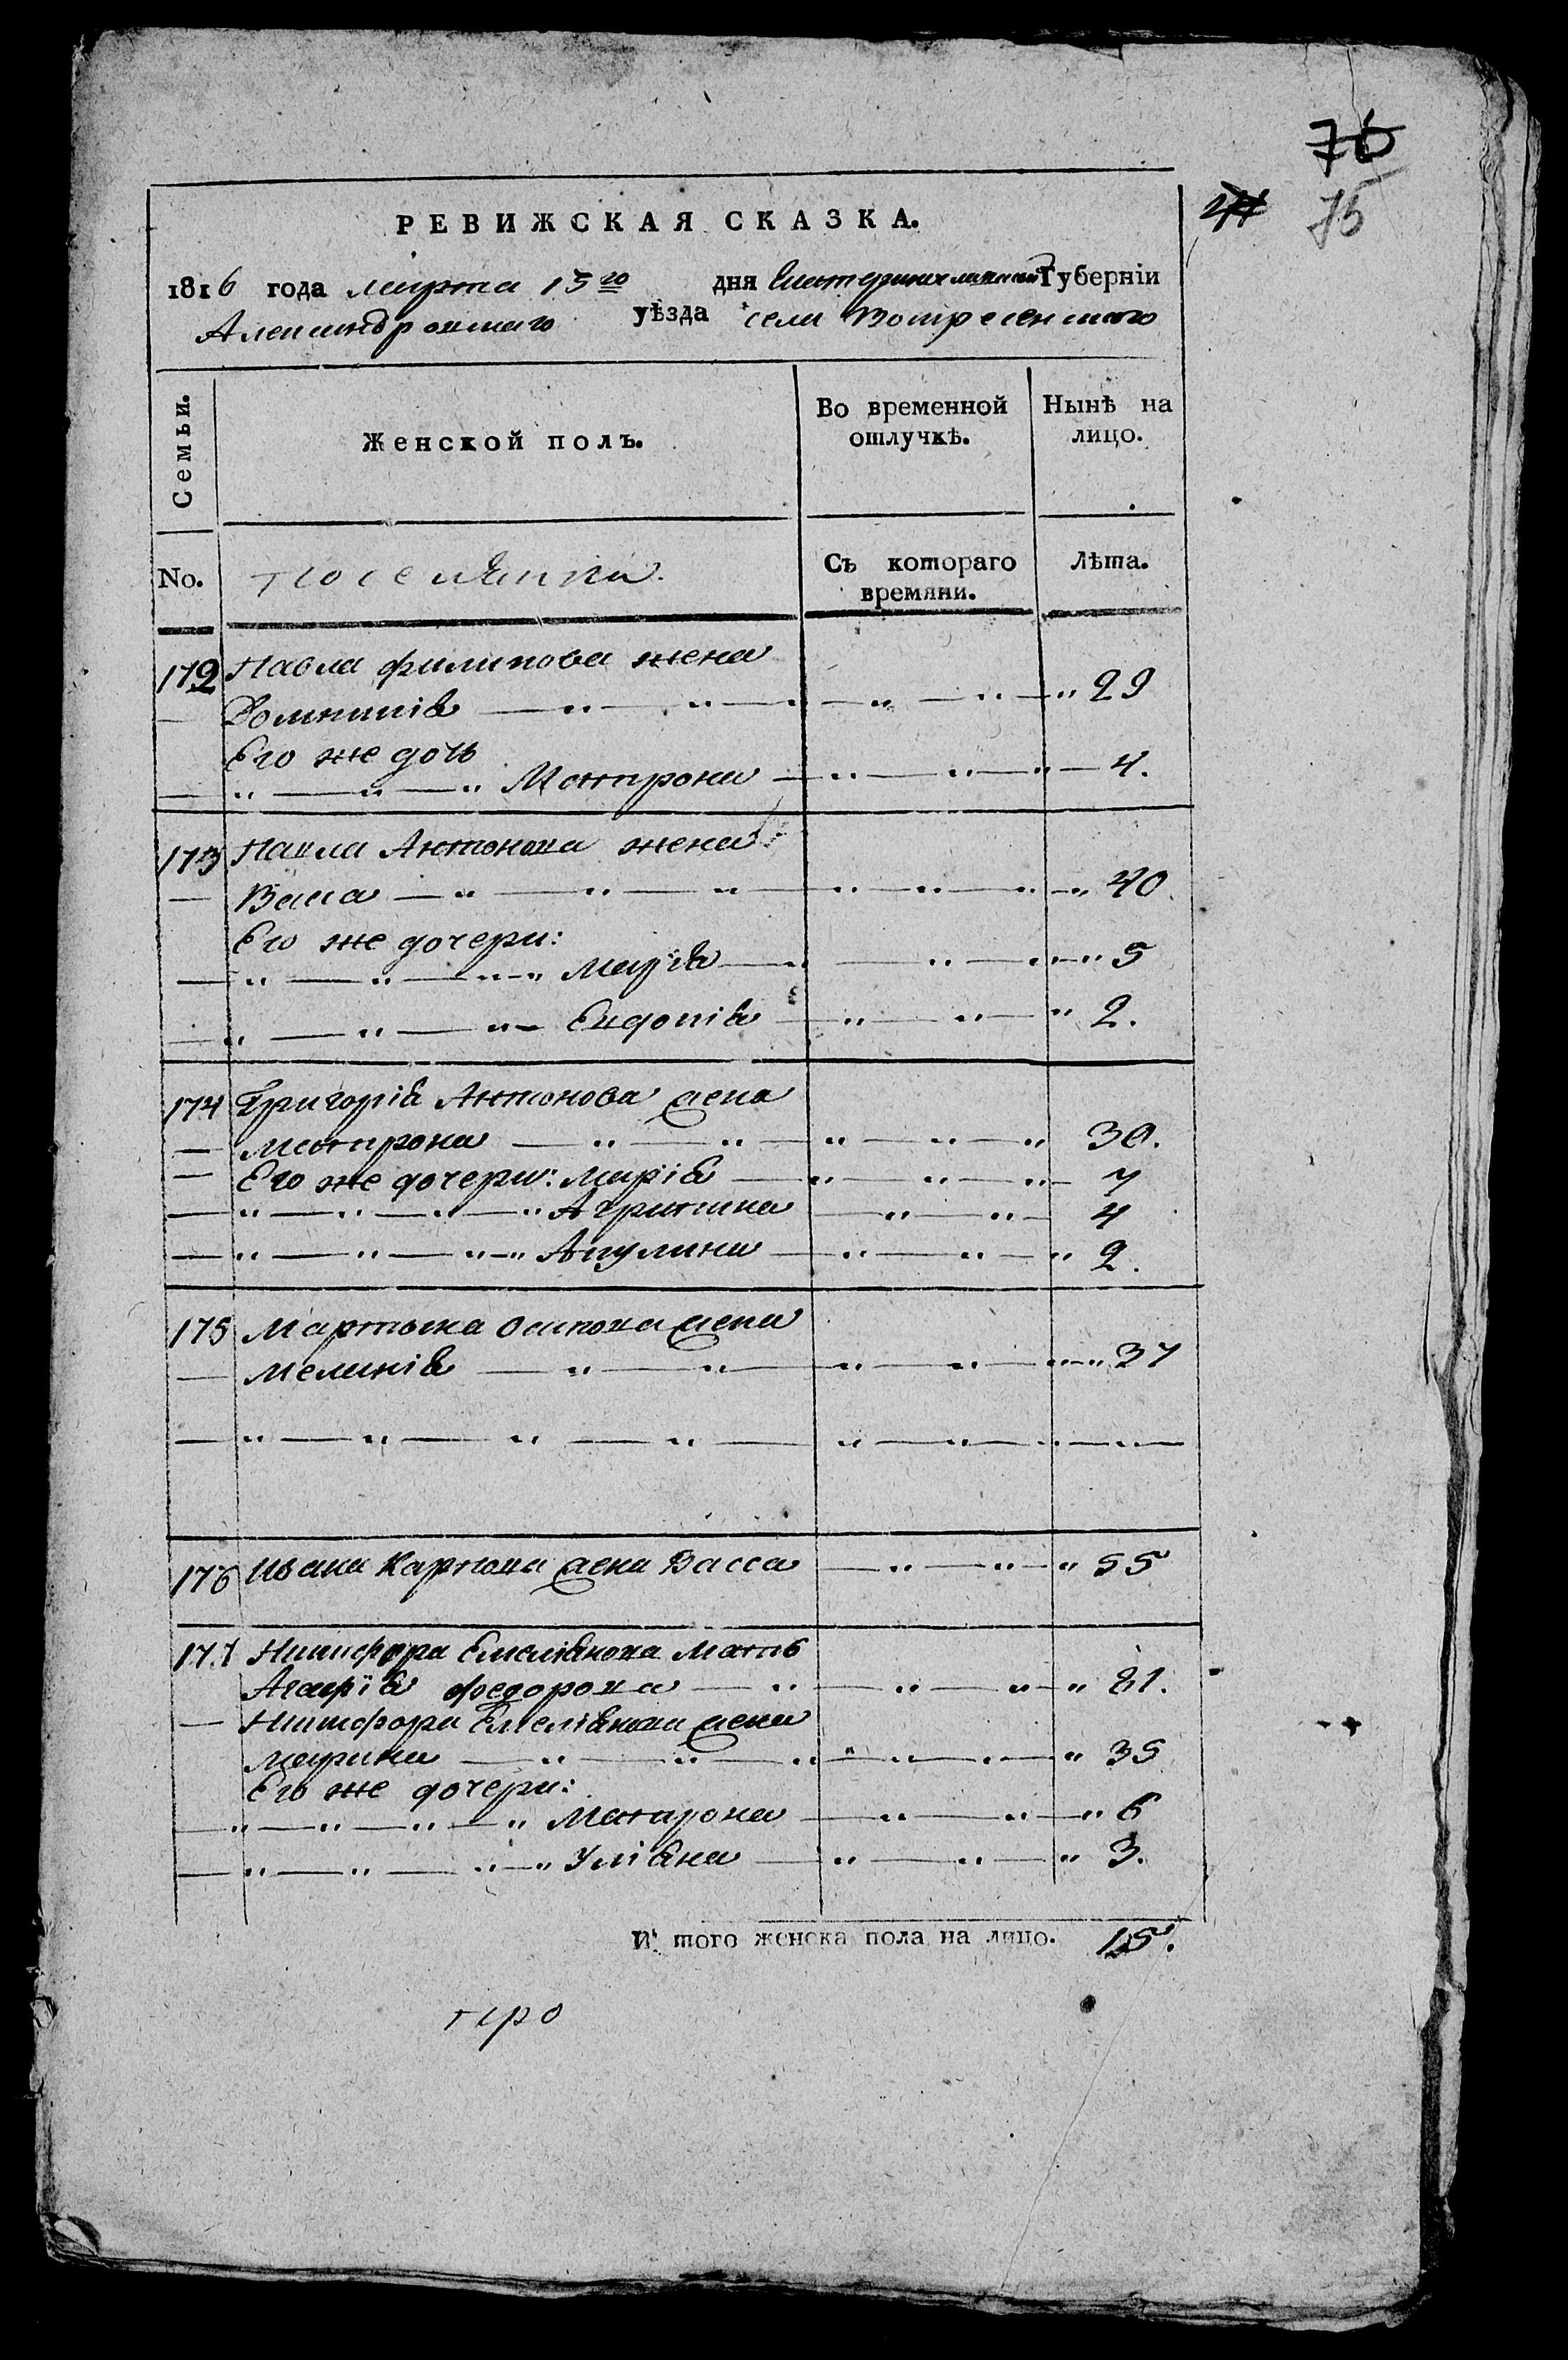 76
75
РЕВИЖСКАЯ СКАЗКА.
1816 года марта 15го дня Екатеринославской Губерніи
Александровскаго уѣзда села Вознесенскаго
Семьи. Женской полъ. Во временной отлучкѣ. Нынѣ на лицо.
No. поселянки. Съ котораго времяни. Лѣта.
172 Павла Филипова жена
Домникія 29
Его же дочь
Матрона 4.
173 Павла Антонова жена
Васса 40.
Его же дочери:
Марія 5
Евдокія 2.
174 Григорія Антонова жена
Матрона 30.
Его же дочери: Марія 7
Агрипина 4
Акулина 2.
175 Мартына Осипова жена
Меланія 37
176 Ивана Карпова жена Васса 55
177 Никифора Емеліянова мать
Агафія Федорова 81.
Никифора Емеліянова жена
Марина 35
Его же дочери:
Матрона 6
Уліяна 3.
И того женска пола на лицо. 15.
про